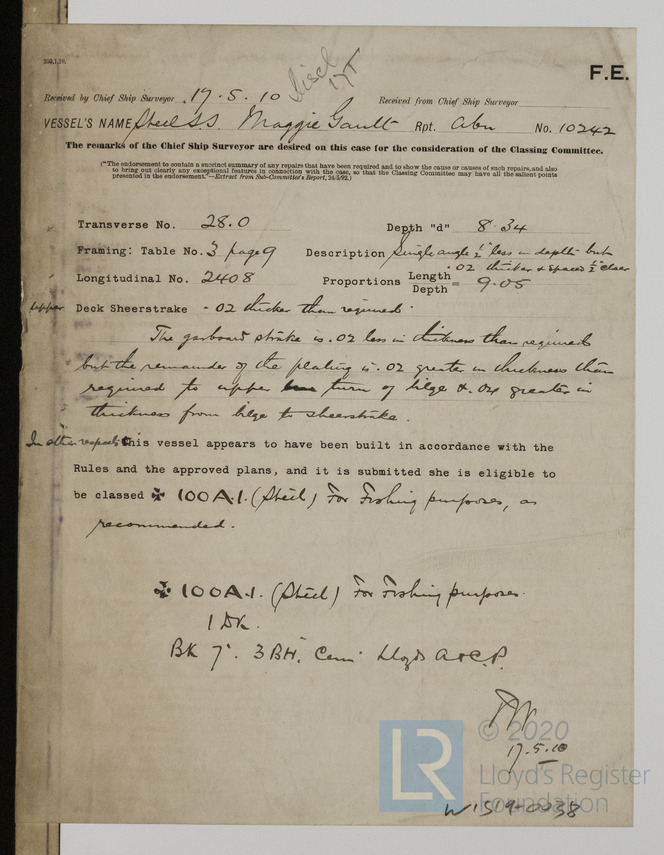 F.E.
Received by Chief Ship Surveyor 17.5.10 Received from Chief Ship Surveyor
VESSEL'S NAME Steel S.S. Maggie Gault Rpt. Abn No. 10242
The remarks of the Chief Ship Surveyor are desired on this case for the consideration of the Classing Committee.
("The endorsement to contain a succinct summary of any repairs that have been required and to show the cause or causes of such repairs, and also
to bring out clearly any exceptional features in connection with the case, so that the Classing Committee may have all the salient points
presented in the endorsement."—Extract from Sub-Committee's Report, 24/5/92.)
Transverse No. 28.0 Depth "d" 8.34
Framing: Table No. 3 page 9 Description Single angle ½" less in depth but
.02 thicker & spaced ½" closer
Longitudinal No. 2408 Proportions Length / Depth = 9.05
Upper Deck Sheerstrake - .02 thicker than required.
The garboard strake is .02 less in thickness than required
but the remainder of the plating is .02 greater in thickness than
required to upper turn of bilge & .04 greater in
thickness from bilge to sheerstrake.
In other respects this vessel appears to have been built in accordance with the
Rules and the approved plans, and it is submitted she is eligible to
be classed ✠ 100A.1. (Steel) For Fishing purposes, as
recommended.
✠ 100A.1. (Steel) For Fishing purposes.
1 Dk.
BK 7". 3 BH. Cem. Lloyds A&C.P.
17.5.10
© 2020
LR
Lloyd's Register
Foundation
W1519-0038